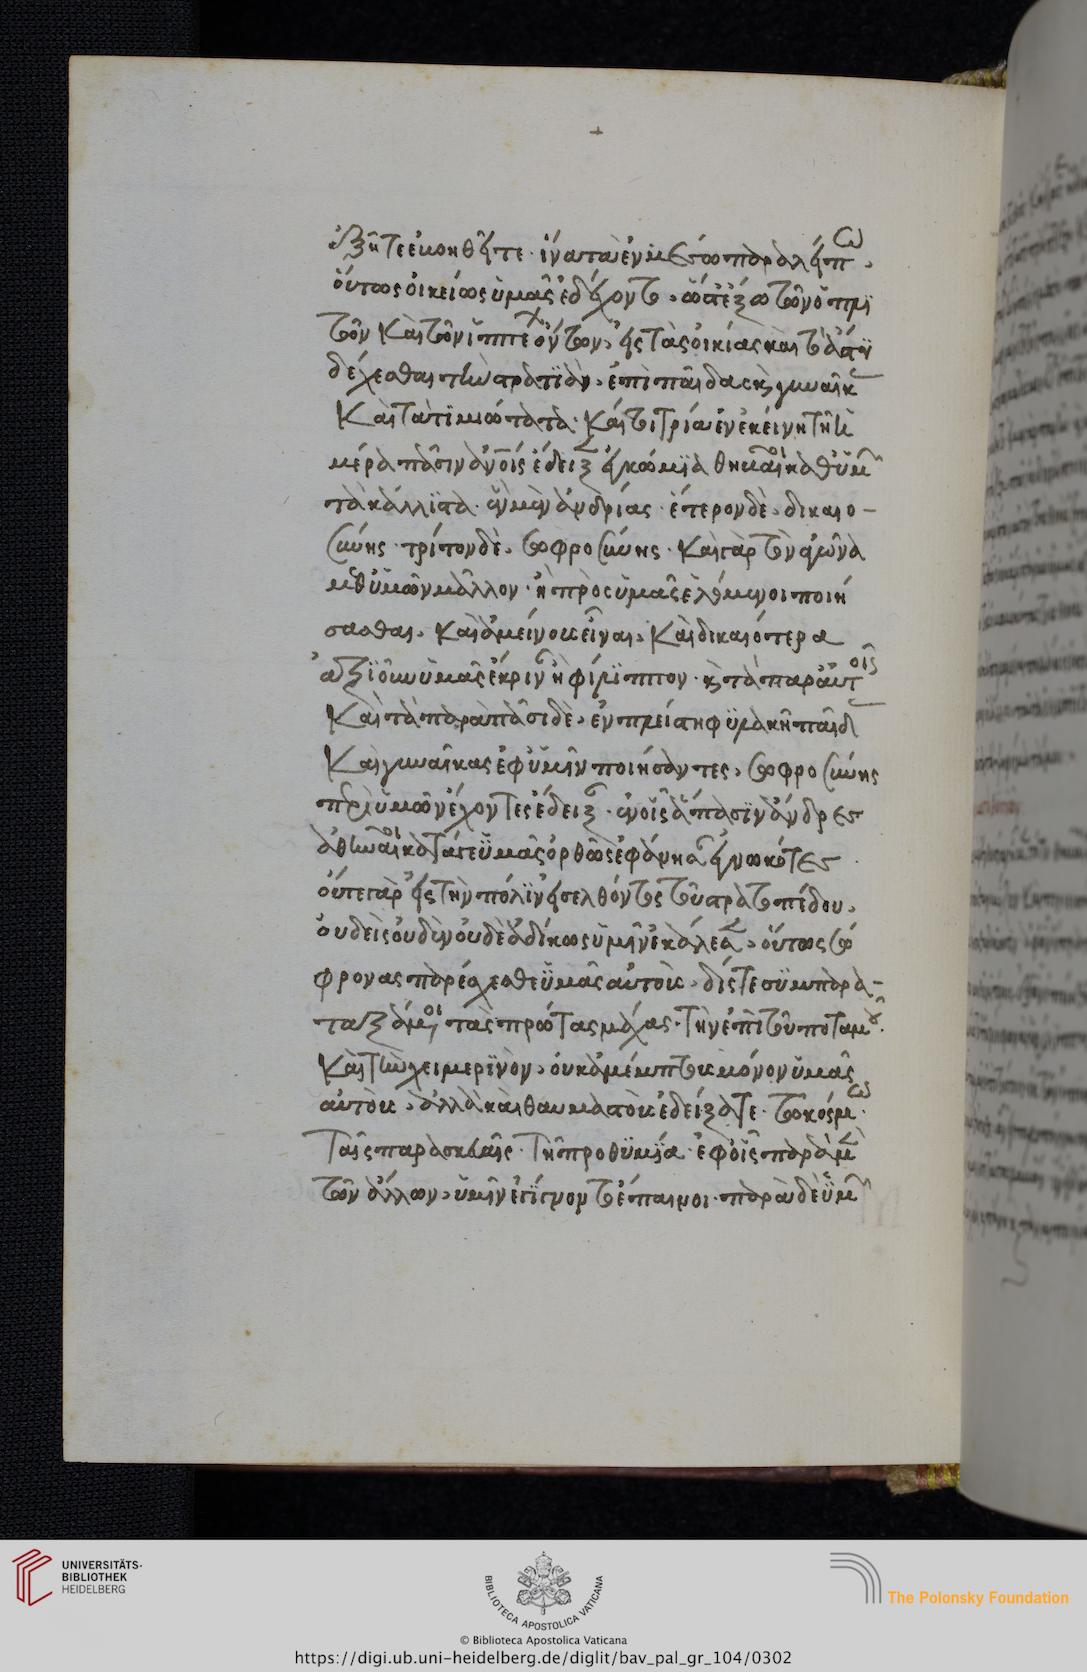 ἐξῄτε ἐβοηθεῖτε · ἵνα τὰ ἐν μέσῳ παραλείπω,
οὕτως οἰκείως ὑμᾶς ἐδέχοντο, ὥστ' ἔξω τῶν ὁπλι
τῶν καὶ τῶν ἱππέων ὄντων, εἰς τὰς οἰκίας καὶ τὸ ἄστυ
δέχεσθαι τὴν στρατιὰν, ἐπὶ παῖδας καὶ γυναῖκας
καὶ τὰ τιμιώτατα · καίτοι τρία ἐν ἐκείνῃ τῇ ἡ
μέρᾳ πᾶσιν ἀνοις ἔδειξαν ἐγκώμια θηβαῖοι καθ' ὑμῶν
τὰ κάλλιστα · ἓν μὲν ἀνδρίας · ἕτερον δὲ, δικαιο-
σύνης · τρίτον δὲ, σωφροσύνης · καὶ γὰρ τὸν ἀγῶνα
μεθ' ὑμῶν μᾶλλον · ἢ πρὸς ὑμᾶς ἑλόμενοι ποιή
σασθαι, καὶ ἀμείνους εἶναι, καὶ δικαιότερα
ἀξιοῦν ὑμᾶς ἔκριναν ἢ φίλιππον · καὶ τὰ παρ' αὐτοῖς
καὶ τὰ παρὰ πᾶσι δὲ, ἐν πλείστῃ φυλακῇ παῖδας
καὶ γυναῖκας ἐφ' ὑμῖν ποιήσαντες, σωφροσύνης
πίστιν περὶ ὑμῶν ἔχοντες ἔδειξαν · ἐν οἷς ἅπασιν ἄνδρες
ἀθηναῖοι κατά γε ὑμᾶς ὀρθῶς ἐφάνησαν ἐγνωκότες ·
οὔτε γὰρ εἰς τὴν πόλιν εἰσελθόντος τοῦ στρατοπέδου,
οὐδεὶς οὐδὲν οὐδὲ ἀδίκως ὑμῖν ἐκάλεσεν, οὕτως σώ
φρονας παρέσχεσθε ὑμᾶς αὐτοὺς, δίς τε συμπαρα-
ταξάμενοι τὰς πρώτας μάχας · τήν ἐπὶ τοῦ ποταμοῦ ·
καὶ τὴν χειμερινὸν, οὐκ ἀμέμπτους μόνον ὑμᾶς
αὐτοὺς, ἀλλὰ καὶ θαυμαστοὺς ἐδείξατε · τῷ κόσμῳ ·
ταῖς παρασκευαῖς · τῇ προθυμίᾳ · ἐφ' οἷς παρὰ μὲν
τῶν ἄλλων, ὑμῖν ἐγίγνοντο ἔπαινοι · παρὰ δὲ ὑμῶν
UNIVERSITÄTS-
BIBLIOTHEK
HEIDELBERG
BIBLIOTECA APOSTOLICA VATICANA
The Polonsky Foundation
© Biblioteca Apostolica Vaticana
https://digi.ub.uni-heidelberg.de/diglit/bav_pal_gr_104/0302